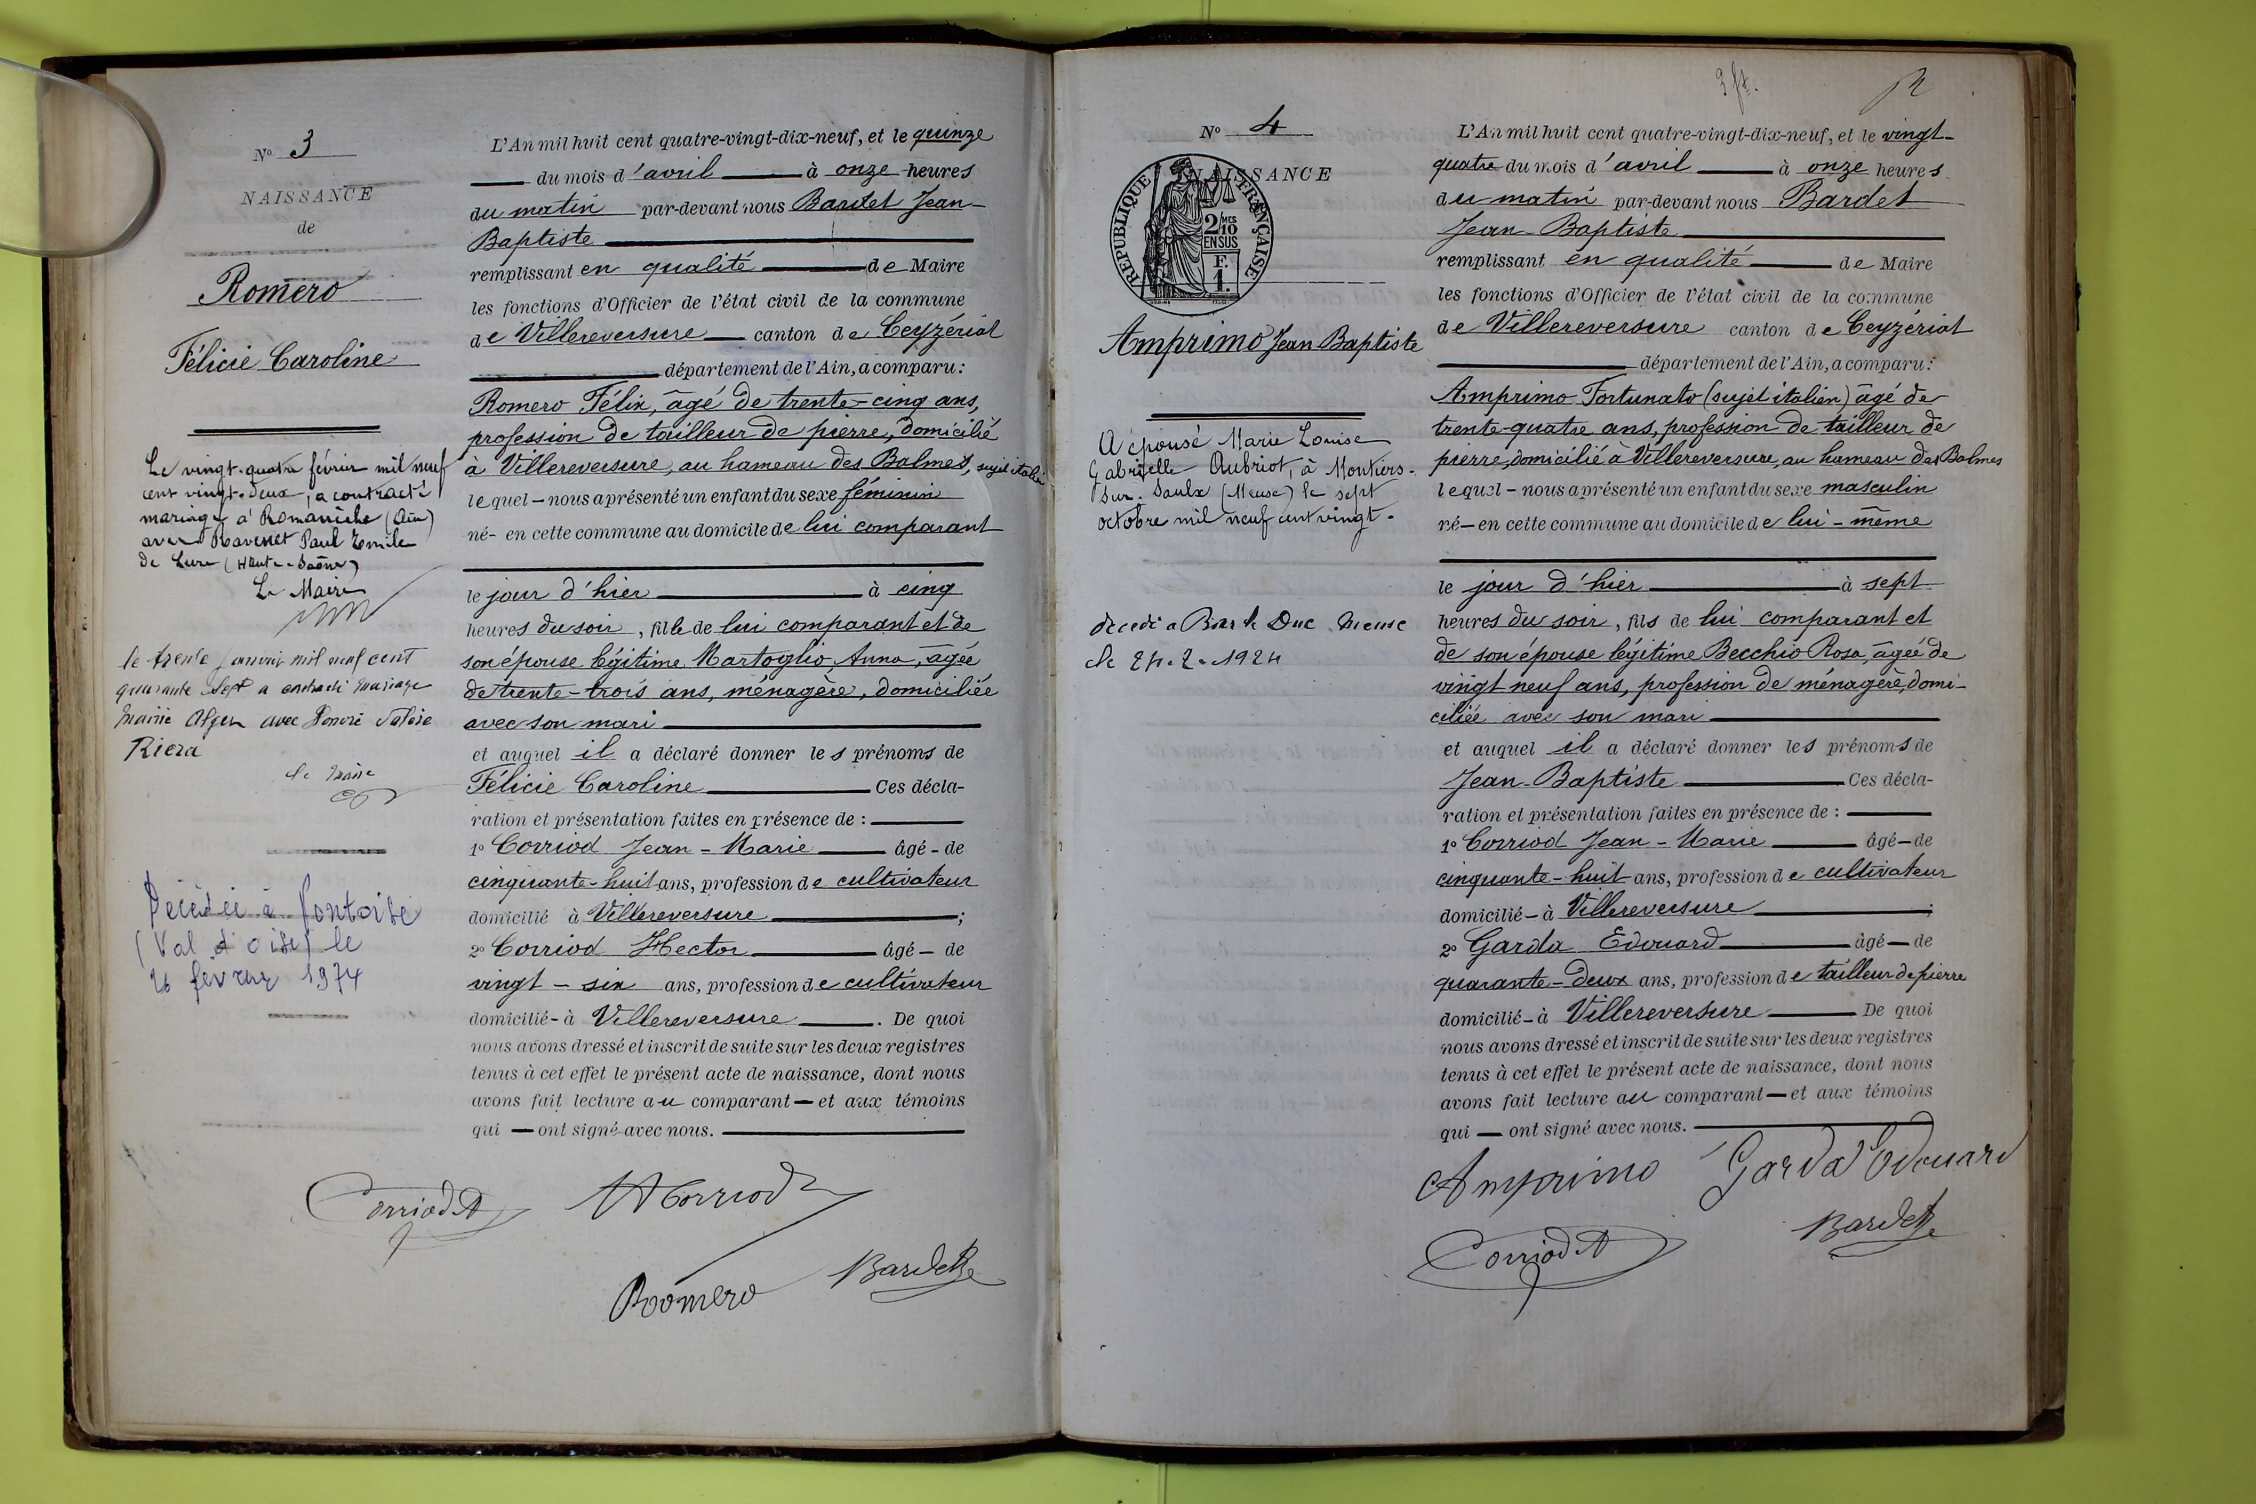 N° 3
NAISSANCE
de
Romero
Félicie Caroline
Le vingt-quatre février mil neuf
cent vingt-deux, a contracté
mariage à Romanèche (Ain)
avec Ravenet Paul Emile
de Lure (Haute-Saône)
Le Maire
le trente janvier mil neuf cent
quarante sept a contracté mariage
mairie Alger avec
Riera
le maire
Décédée à Pontoise
(Val d'oise) le
26 février 1974
L'An mil huit cent quatre-vingt-dix-neuf, et le quinze
du mois d'avril à onze heures
du matin par-devant nous Bardet Jean-
Baptiste
remplissant en qualité de Maire
les fonctions d'Officier de l'état civil de la commune
de Villereversure canton de Ceyzériat
département de l'Ain, a comparu :
Romero Félix, âgé de trente-cinq ans,
profession de tailleur de pierre, domicilié
à Villereversure, au hameau des Balmes, sujet italien
lequel - nous a présenté un enfant du sexe féminin
né- en cette commune au domicile de lui comparant
le jour d'hier à cinq
heures du soir, fille de lui comparant et de
son épouse légitime Martoglio Anna, âgée
de trente-trois ans, ménagère, domiciliée
avec son mari
et auquel il a déclaré donner les prénoms de
Félicie Caroline Ces décla-
ration et présentation faites en présence de :
1° Corriod Jean-Marie âgé - de
cinquante-huit ans, profession de cultivateur
domicilié à Villereversure ;
2° Corriod Hector âgé - de
vingt-six ans, profession de cultivateur
domicilié - à Villereversure . De quoi
nous avons dressé et inscrit de suite sur les deux registres
tenus à cet effet le présent acte de naissance, dont nous
avons fait lecture au comparant - et aux témoins
qui - ont signé avec nous.
Corriod
H Corriod
Romero
Bardet
3 ft.
N° 4
NAISSANCE
RÉPUBLIQUE FRANÇAISE
2/10 MES
EN SUS
F.
1.
Amprimo Jean Baptiste
A épousé Marie Louise
Gabrielle Aubriot, à Montiers-
sur-Saulx (Meuse) le sept
octobre mil neuf cent vingt.
décédé à Bar le Duc Meuse
le 24.2.1924
L'An mil huit cent quatre-vingt-dix-neuf, et le vingt-
quatre du mois d'avril à onze heures
du matin par-devant nous Bardet
Jean-Baptiste
remplissant en qualité de Maire
les fonctions d'Officier de l'état civil de la commune
de Villereversure canton de Ceyzériat
département de l'Ain, a comparu :
Amprimo Fortunato (sujet italien) âgé de
trente-quatre ans, profession de tailleur de
pierre, domicilié à Villereversure, au hameau des Balmes
lequel - nous a présenté un enfant du sexe masculin
né - en cette commune au domicile de lui-même
le jour d'hier à sept
heures du soir, fils de lui comparant et
de son épouse légitime Becchio Rosa, âgée de
vingt neuf ans, profession de ménagère, domi-
ciliée avec son mari
et auquel il a déclaré donner les prénoms de
Jean-Baptiste Ces décla-
ration et présentation faites en présence de :
1° Corriod Jean-Marie âgé - de
cinquante-huit ans, profession de cultivateur
domicilié - à Villereversure ;
2° Garda Edouard âgé - de
quarante-deux ans, profession de tailleur de pierre
domicilié - à Villereversure De quoi
nous avons dressé et inscrit de suite sur les deux registres
tenus à cet effet le présent acte de naissance, dont nous
avons fait lecture au comparant - et aux témoins
qui - ont signé avec nous.
Amprimo Garda Edouard
Corriod
Bardet